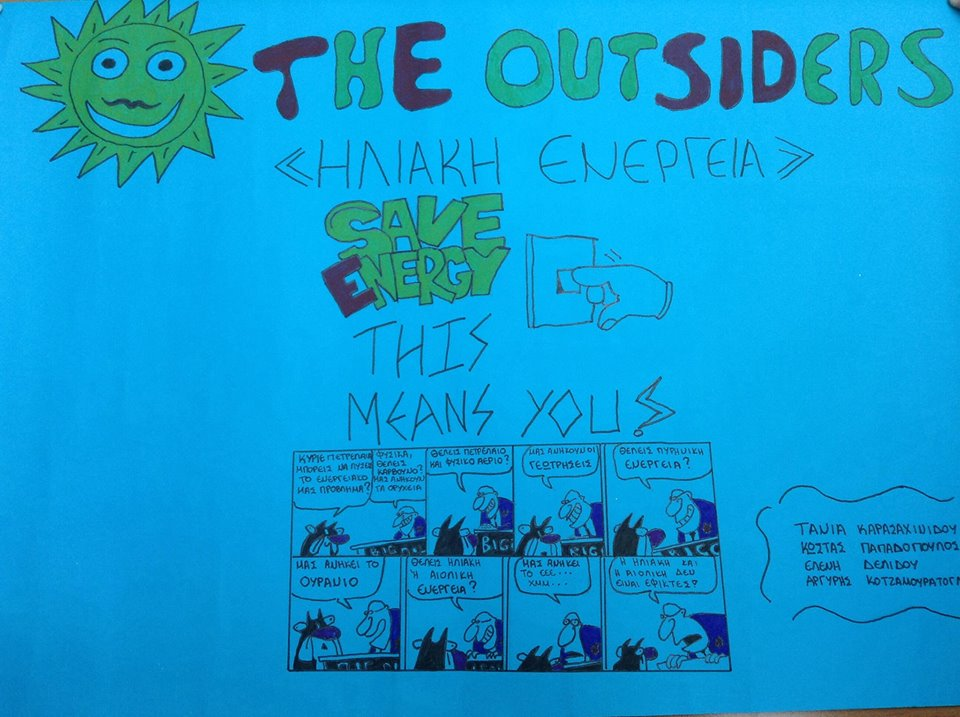 THE OUTSIDERS
«ΗΛΙΑΚΗ ΕΝΕΡΓΕΙΑ»
SAVE
ENERGY
THIS
MEANS YOU
ΚΥΡΙΕ ΠΕΤΡΕΛΑΙΑ
ΜΠΟΡΕΙΣ ΝΑ ΛΥΣΕΙΣ
ΤΟ ΕΝΕΡΓΕΙΑΚΟ
ΜΑΣ ΠΡΟΒΛΗΜΑ?
ΦΥΣΙΚΑ,
ΘΕΛΕΙΣ
ΚΑΡΒΟΥΝΟ?
ΜΑΣ ΑΝΗΚΟΥΝ
ΤΑ ΟΡΥΧΕΙΑ
ΘΕΛΕΙΣ ΠΕΤΡΕΛΑΙΟ
ΚΑΙ ΦΥΣΙΚΟ ΑΕΡΙΟ?
BIG
ΜΑΣ ΑΝΗΚΟΥΝ ΟΙ
ΓΕΩΤΡΗΣΕΙΣ
BIG
ΘΕΛΕΙΣ ΠΥΡΗΝΙΚΗ
ΕΝΕΡΓΕΙΑ?
ΜΑΣ ΑΝΗΚΕΙ ΤΟ
ΟΥΡΑΝΙΟ
ΘΕΛΕΙΣ ΗΛΙΑΚΗ
Ή ΑΙΟΛΙΚΗ
ΕΝΕΡΓΕΙΑ?
ΜΑΣ ΑΝΗΚΕΙ
ΤΟ ΕΕΕ...
ΧΜΜ...
Η ΗΛΙΑΚΗ ΚΑΙ
Η ΑΙΟΛΙΚΗ ΔΕΝ
ΕΙΝΑΙ ΕΦΙΚΤΕΣ?
ΤΑΝΙΑ ΚΑΡΑΣΑΧΙΝΙΔΟΥ
ΚΩΣΤΑΣ ΠΑΠΑΔΟΠΟΥΛΟΣ
ΕΛΕΝΗ ΔΕΛΙΔΟΥ
ΑΡΓΥΡΗΣ